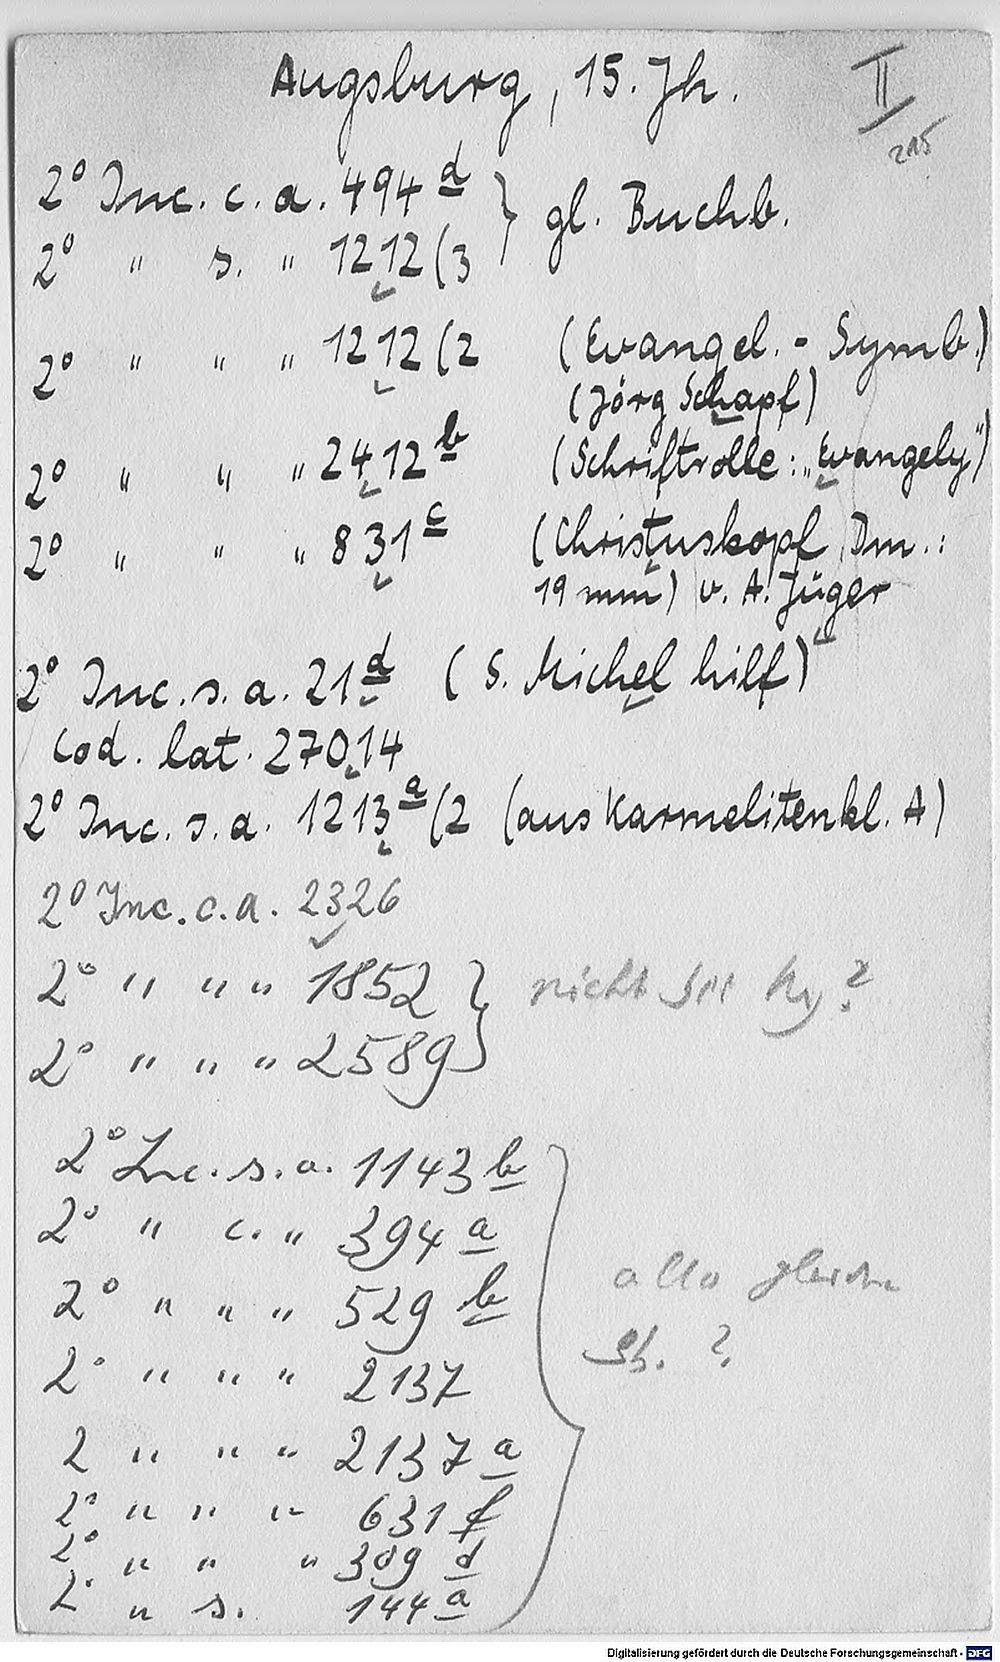 Augsburg, 15. Jh.
II
215
2° Inc. c. a. 494 d } gl. Buchb.
2° " s. " 1212 (3
2° " " " 1212 (2 (Evangel. - Symb.)
(Jörg Schapf)
2° " " " 2412 b (Schriftrolle: „Evangely")
2° " " " 831 c (Christuskopf, Dm.:
19 mm) v. A. Jüger
2° Inc. s. a. 21 d (S. Michel hilf)
Cod. lat. 27014
2° Inc. s. a. 1213 a (2 (aus Karmelitenkl. A)
2° Inc. c. a. 2326
2° " " " 1852 } nicht
2° " " " 2589
2° Inc. s. a. 1143 b
2° " c. " 394 a
2° " " " 529 b
alle gleiche
2° " " " 2137
?
2 " " " 2137 a
2° " " " 631 f
2° " " " 309 d
2° " s. 144 a
Digitalisierung gefördert durch die Deutsche Forschungsgemeinschaft - DFG